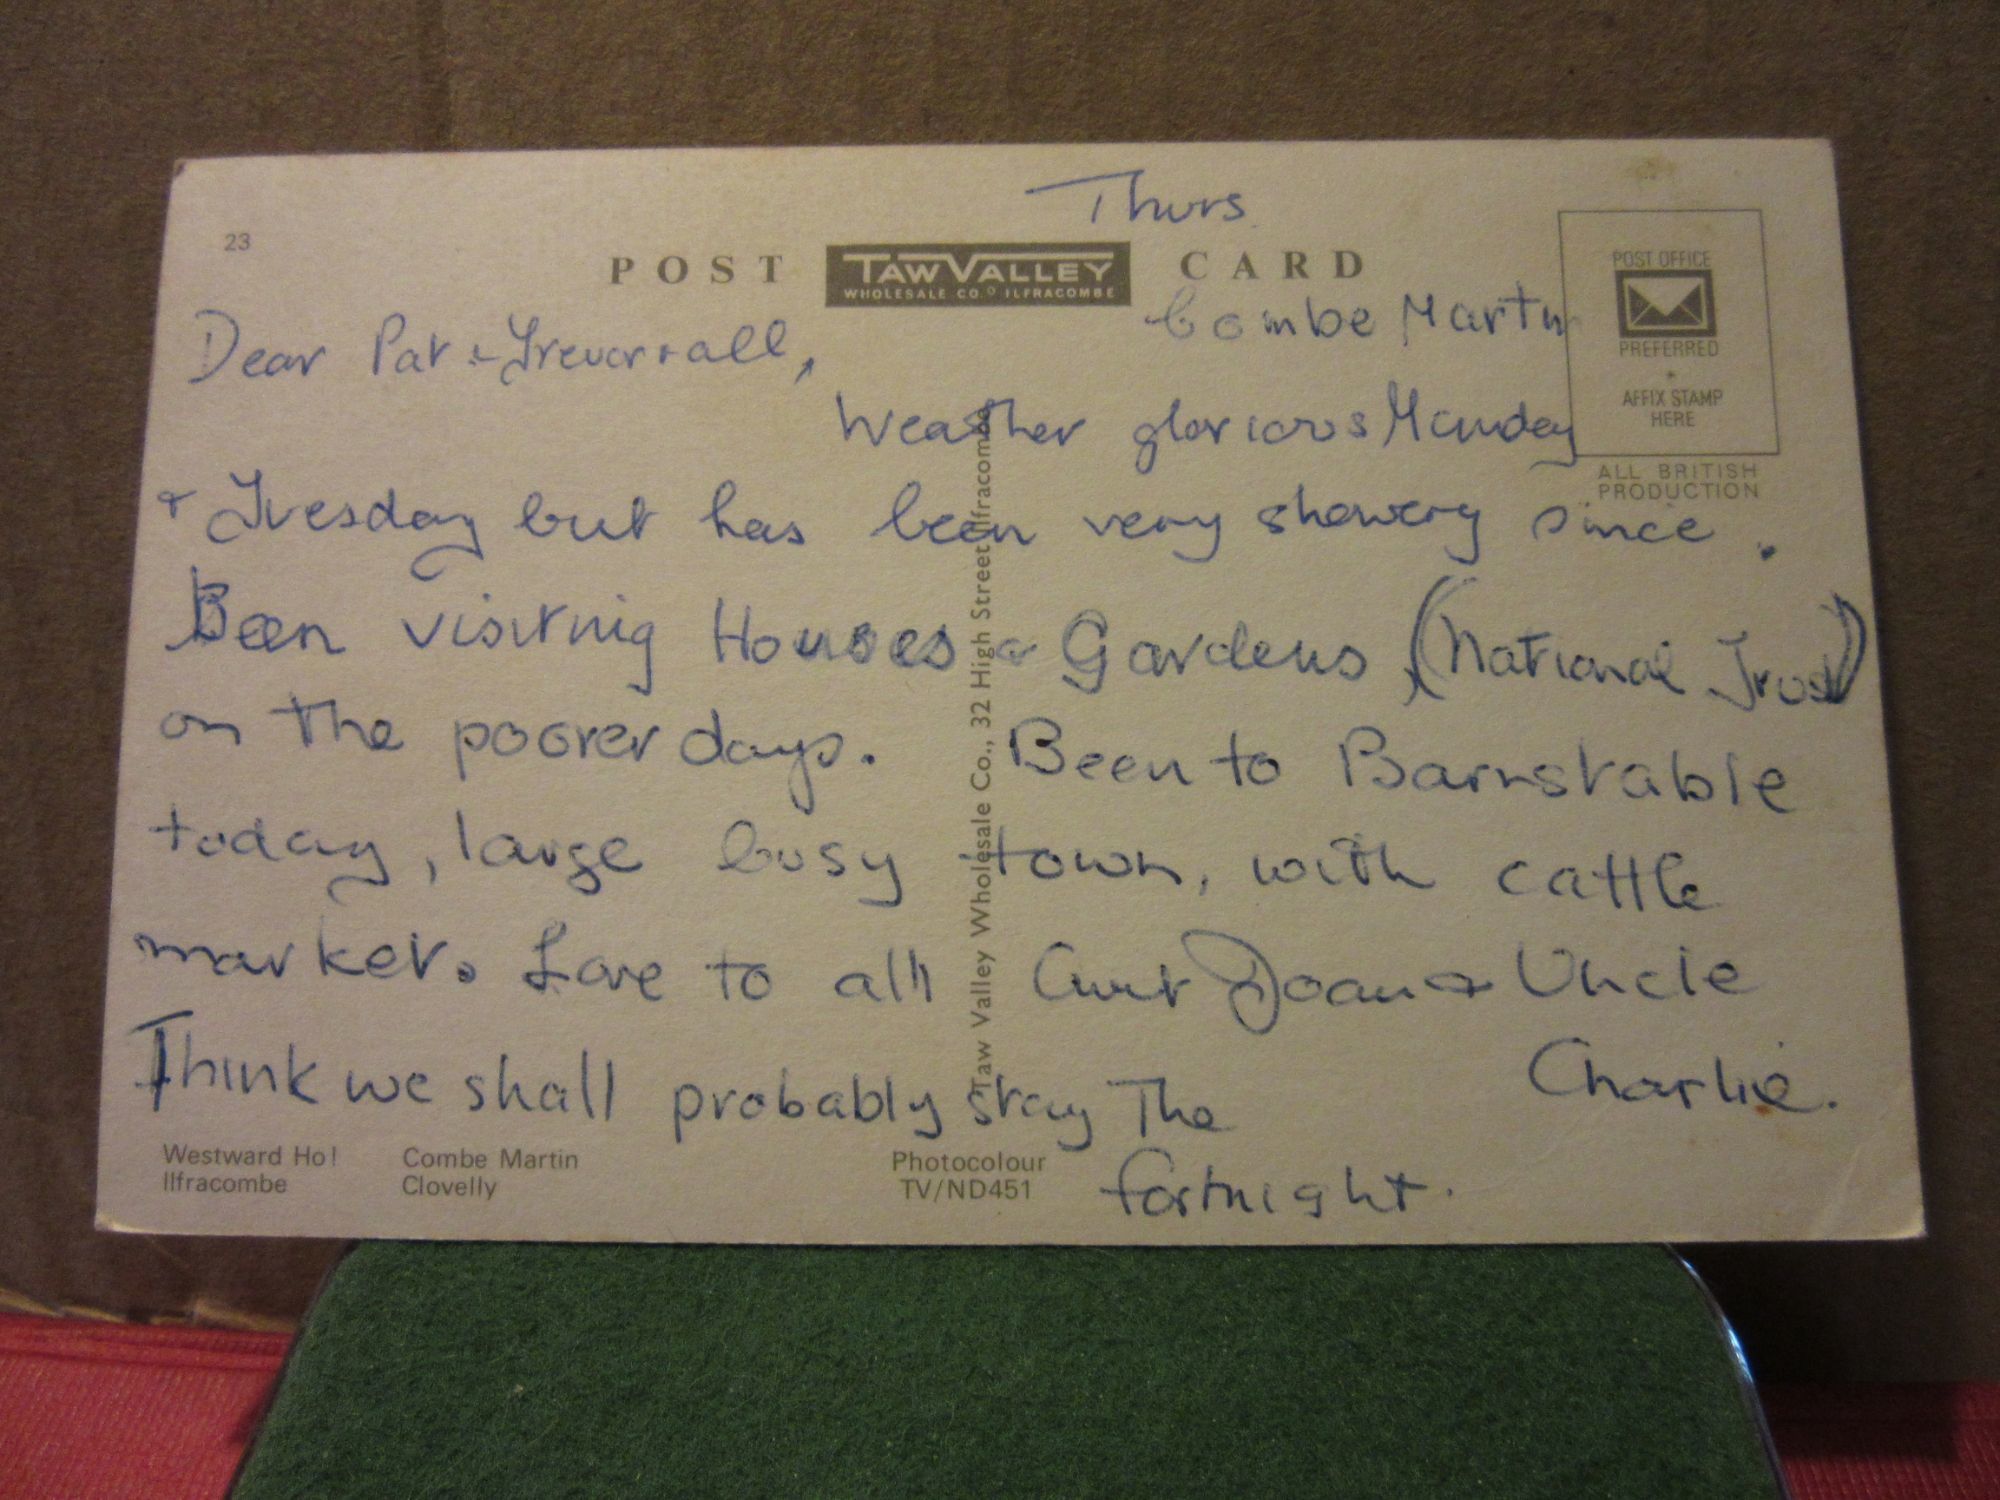 Thurs
23
POST TAW VALLEY CARD
WHOLESALE CO. ILFRACOMBE
POST OFFICE
PREFERRED
AFFIX STAMP
HERE
ALL BRITISH
PRODUCTION
Combe Martin
Dear Pat & Trevor & all,
Weather glorious Monday
& Tuesday but has been very showery since.
Been visiting Houses & Gardens, (National Trust)
on the poorer days. Been to Barnstable
today, large busy town, with cattle
market. Love to all Aunt Joan & Uncle
Charlie.
Think we shall probably stay the
fortnight.
Taw Valley Wholesale Co., 32 High Street, Ilfracombe
Westward Ho! Combe Martin
Ilfracombe Clovelly
Photocolour
TV/ND451